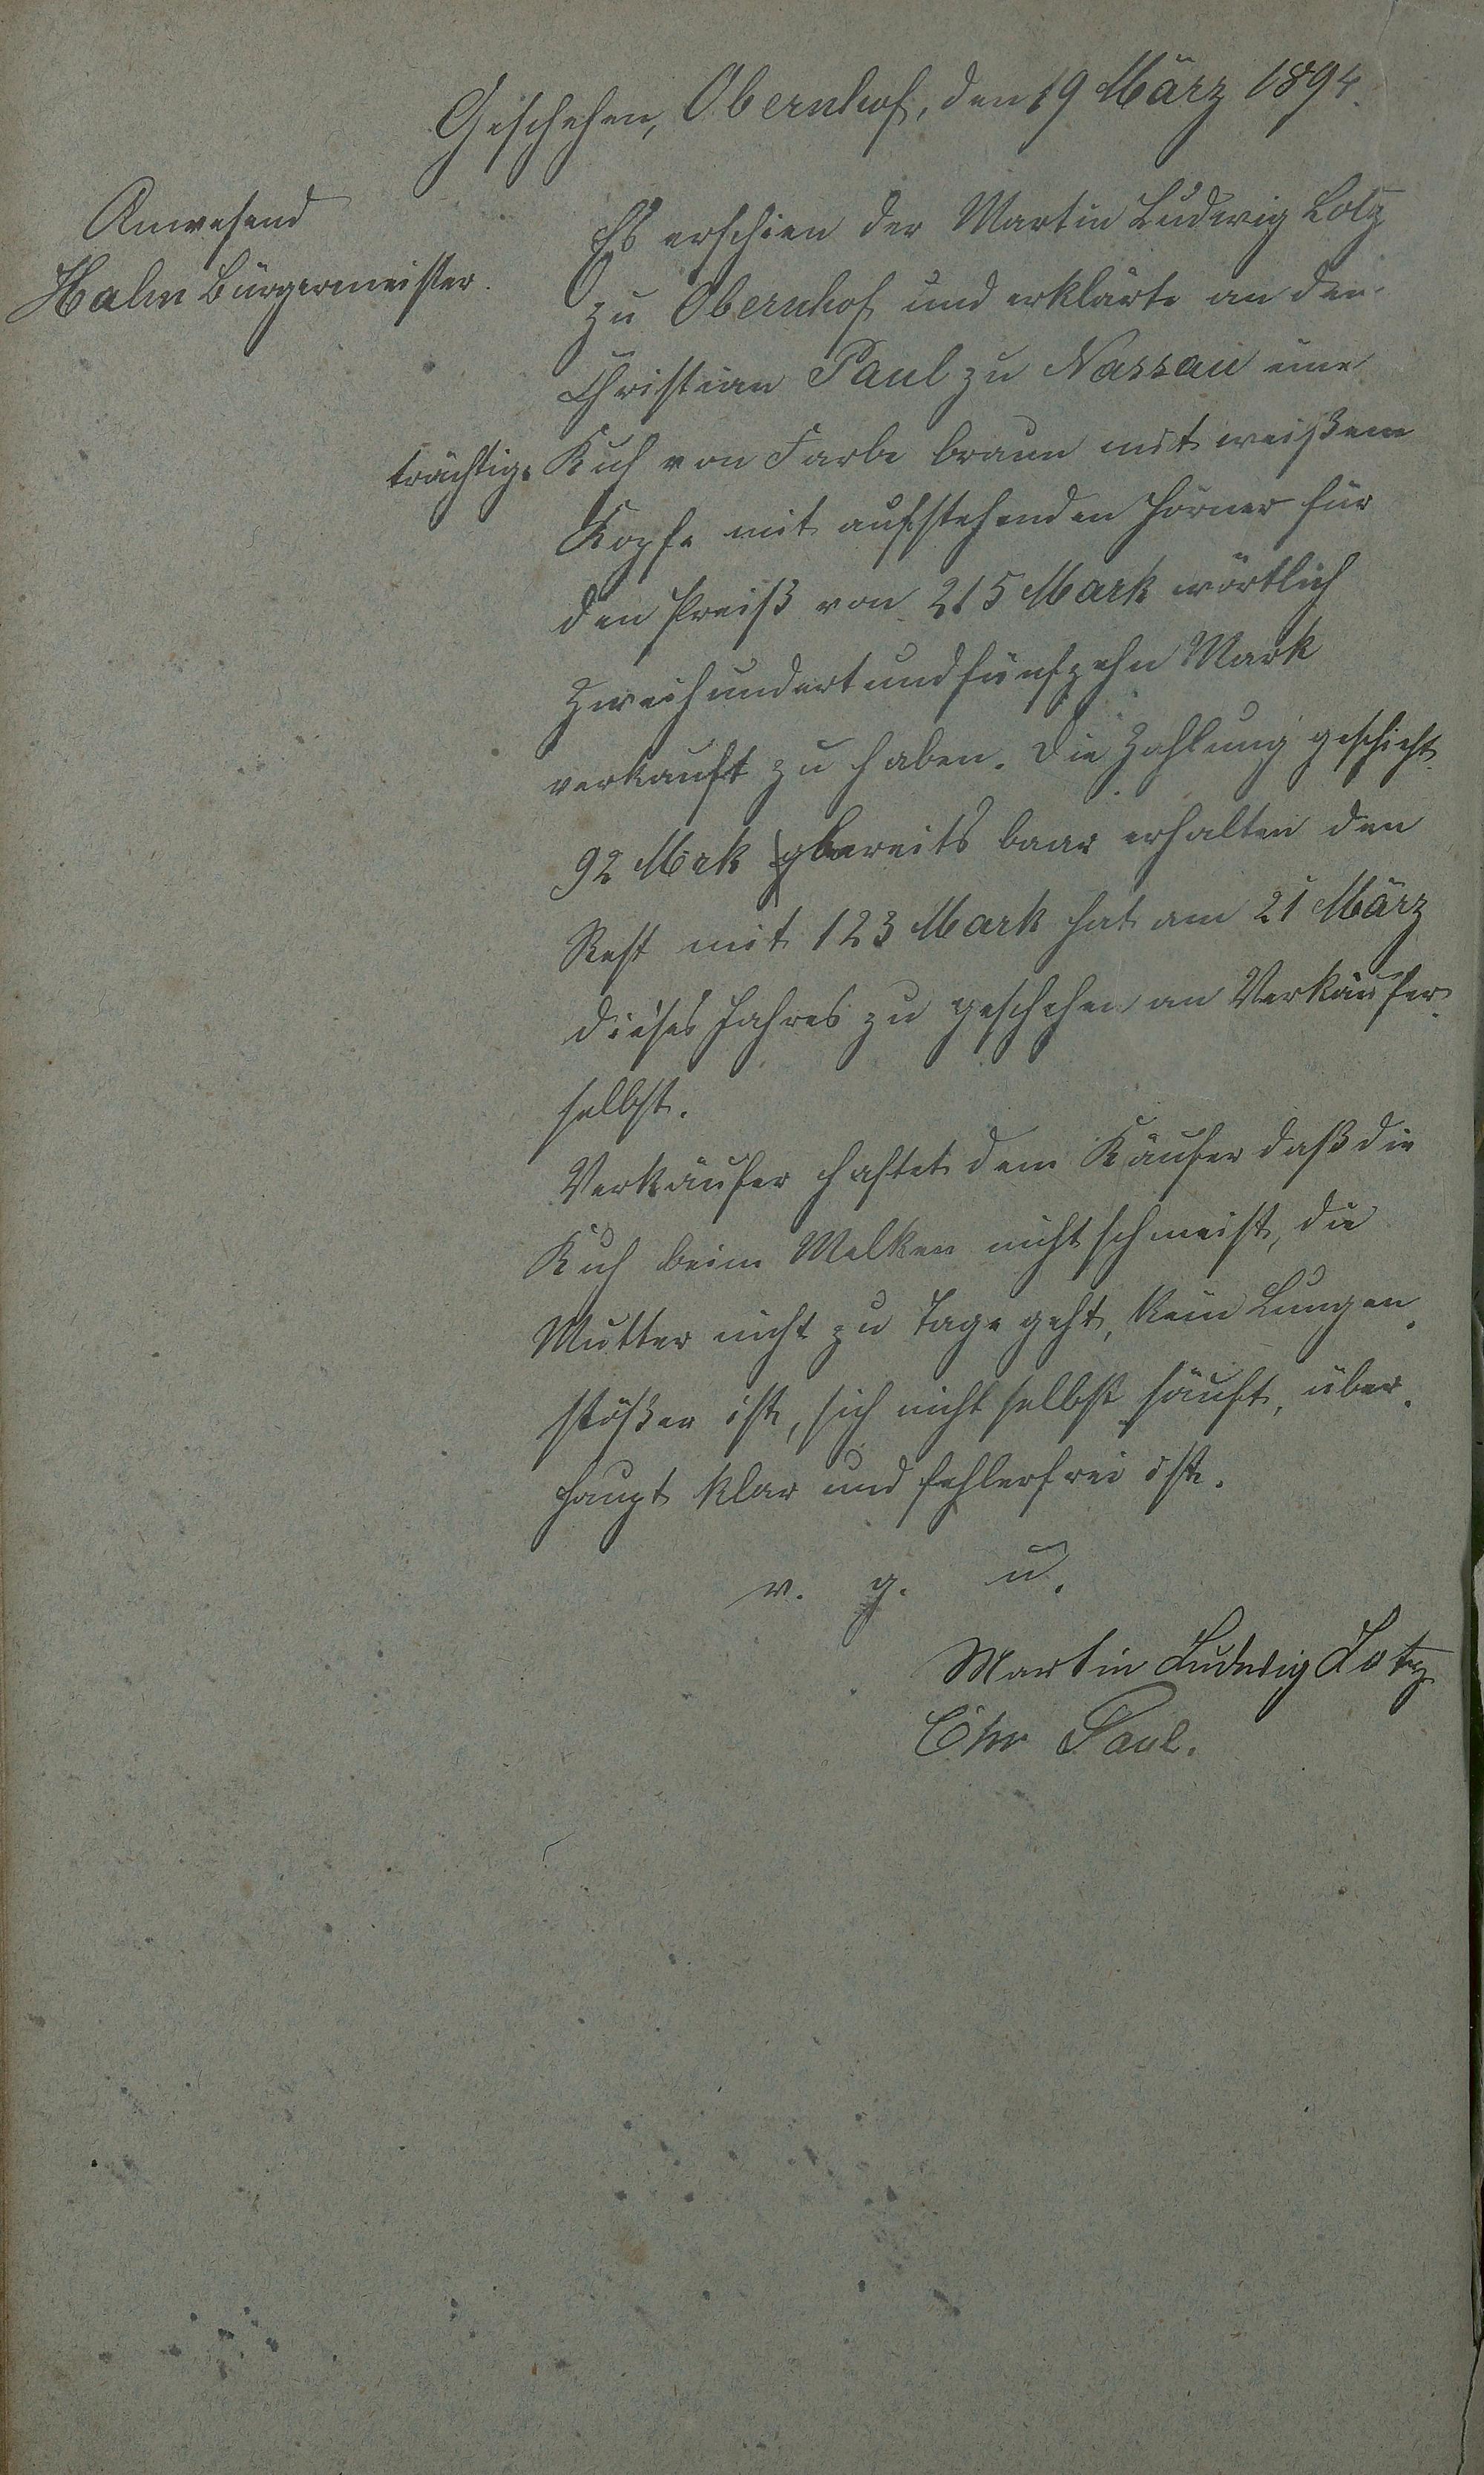 Geschehen, Obernhof, den 19 März 1894.
Anwesend
Halm Bürgermeister.
Es erschien der Martin Ludwig Lotz
zu Obernhof und erklärte an den
Christian Paul zu Nassau eine
trächtige Kuh von Farbe braun mit weißem
Kopfe mit aufstehenden Hörner für
den Preiß von 215 Mark wörtlich
Zweihundertundfünfzehn Mark
verkauft zu haben. Die Zahlung geschieht
92 Mark bereits baar erhalten den
Rest mit 123 Mark hat am 21 März
dieses Jahres zu geschehen an Verkäufer
selbst.
Verkäufer haftet dem Käufer daß die
Kuh beim Melken nicht schmeist, die
Mutter nicht zu Tage geht, kein Lungen-
stößer ist, sich nicht selbst säuft, über-
haupt klar und fehlerfrei ist.
v. g. u.
Martin Ludwig Lotz
Chr Paul.